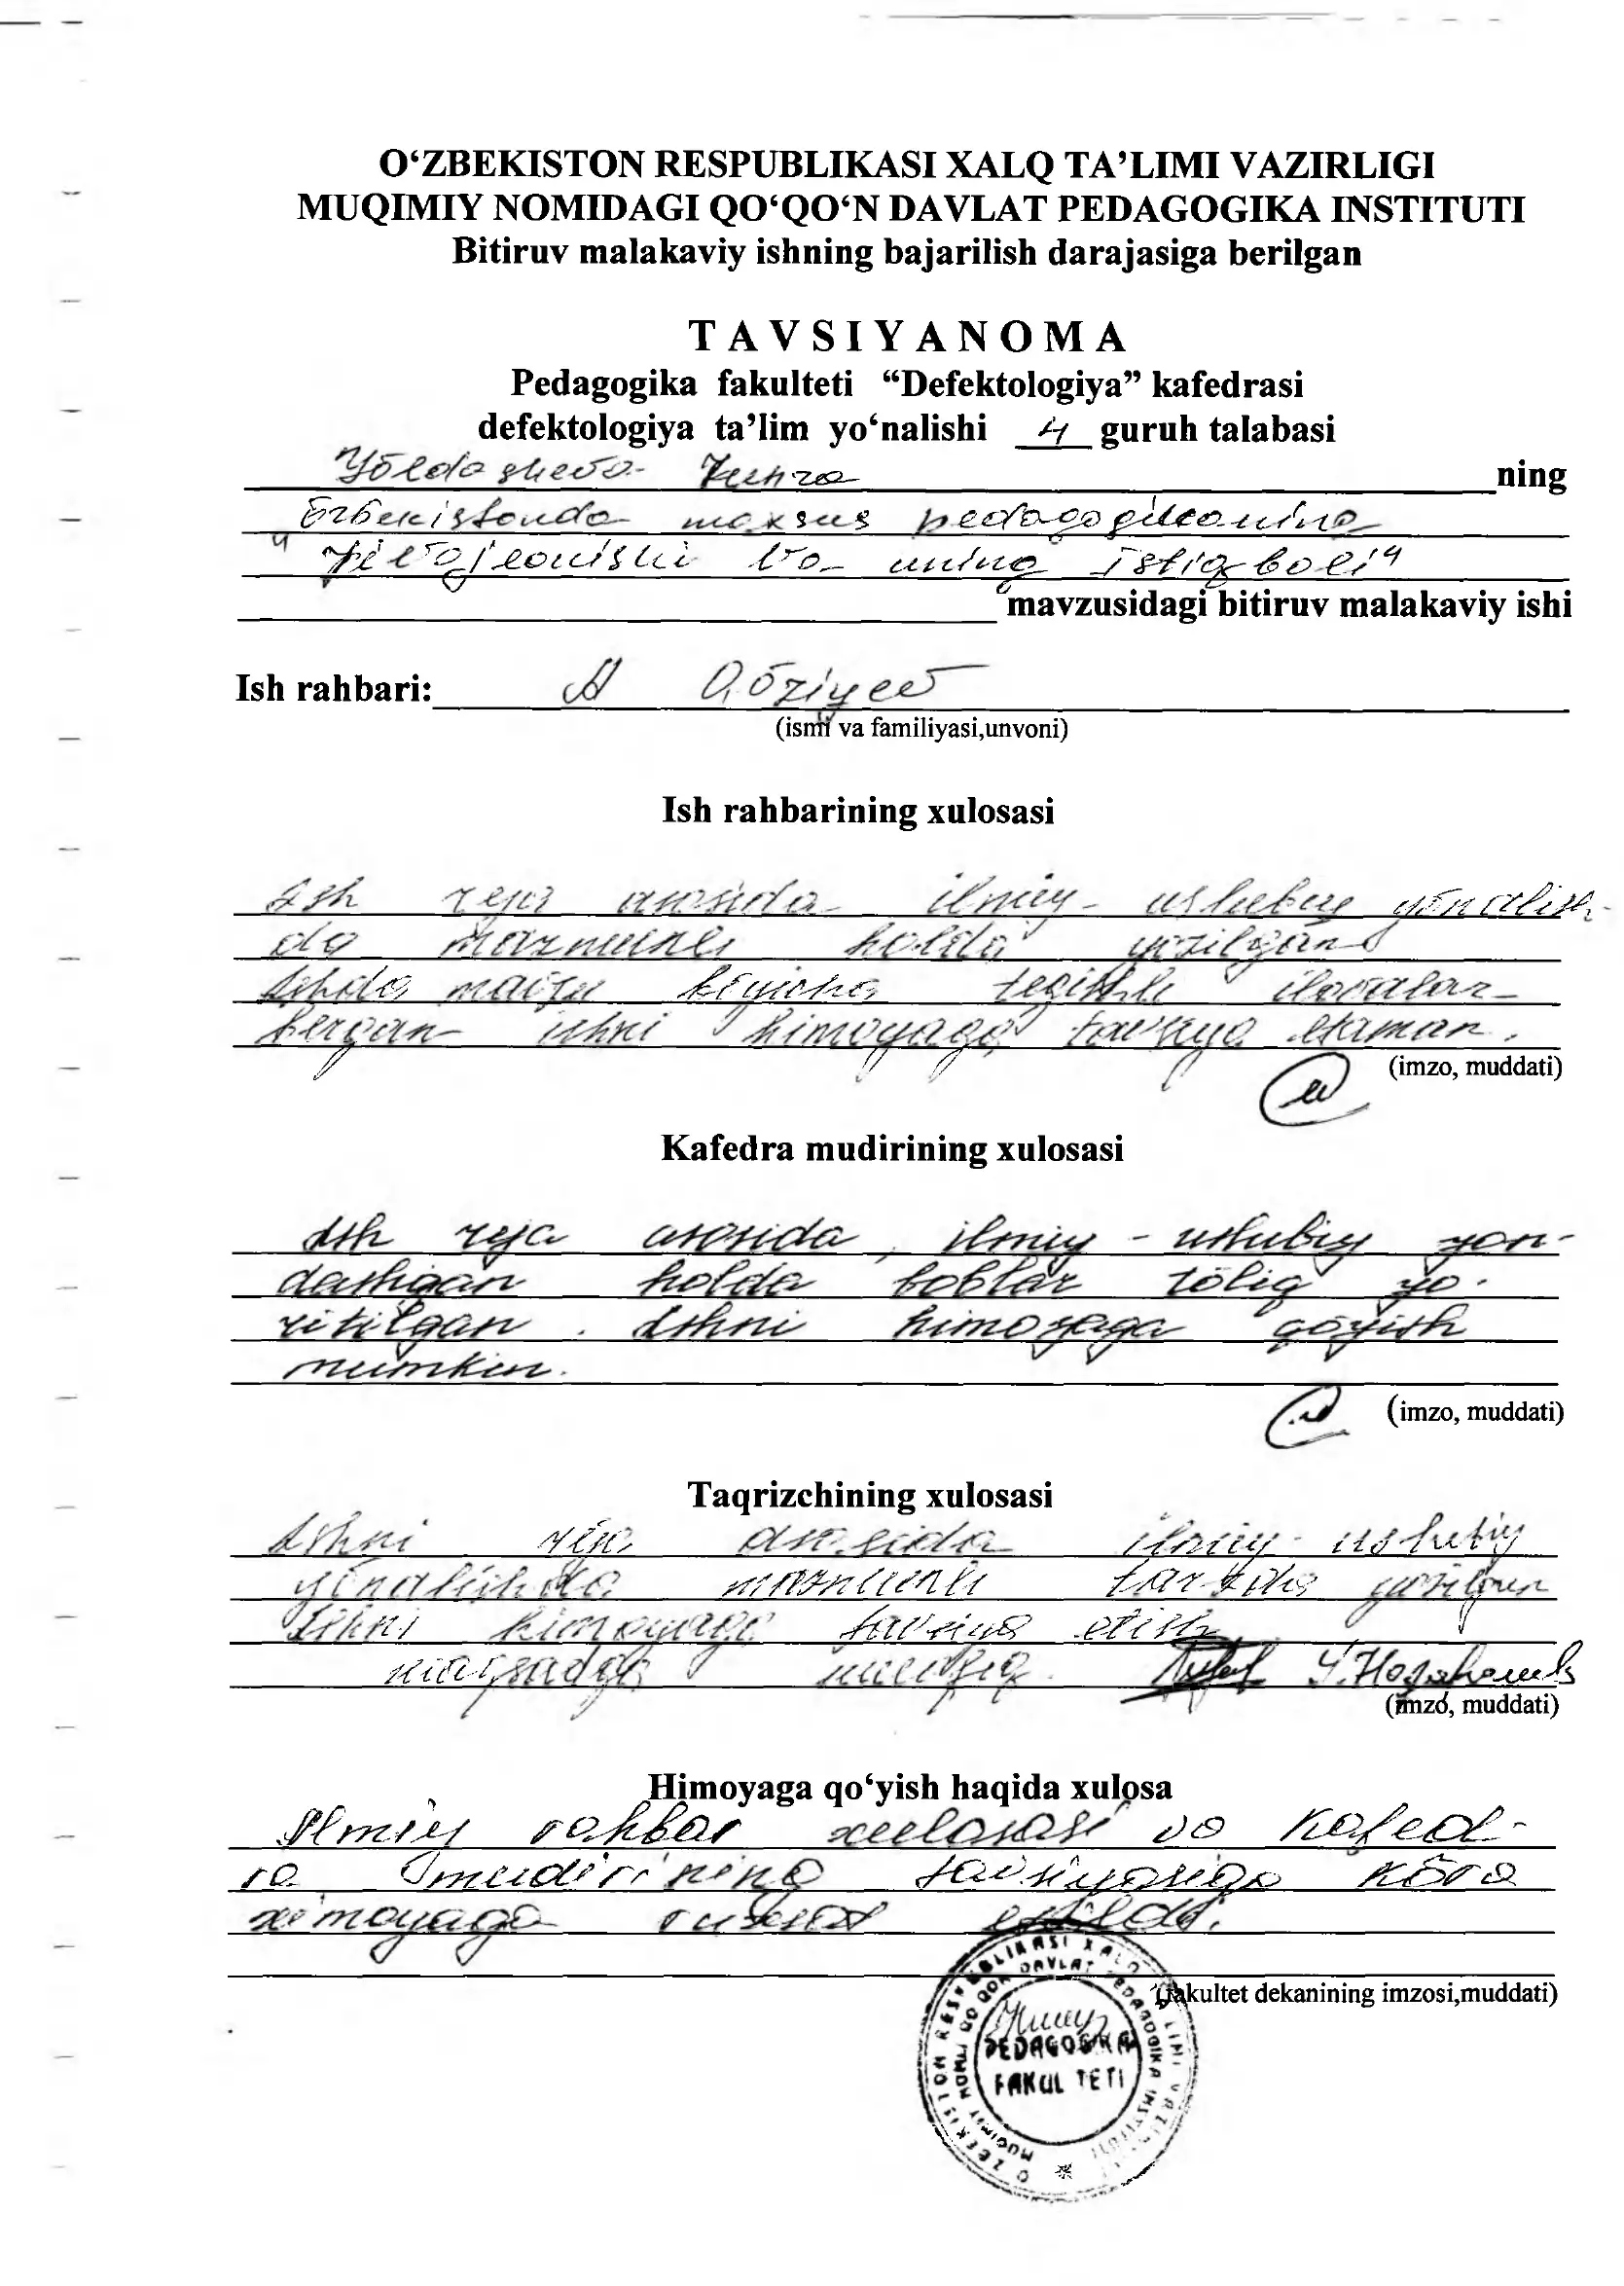 O‘ZBEKISTON RESPUBLIKASI XALQ TA’LIMI VAZIRLIGI
MUQIMIY NOMIDAGI QO‘QO‘N DAVLAT PEDAGOGIKA INSTITUTI
Bitiruv malakaviy ishning bajarilish darajasiga berilgan
TAVSIYANOMA
Pedagogika fakulteti “Defektologiya” kafedrasi
defektologiya ta’lim yo‘nalishi 4 guruh talabasi
Yõldosheva ning
Õzbekistonda maxsus pedagogikaning
"rivojlonishi va uning istiqboli"
mavzusidagi bitiruv malakaviy ishi
Ish rahbari: A Qõziyev
(ismi va familiyasi,unvoni)
Ish rahbarining xulosasi
Ish reja asosida ilmiy-uslubiy yõnalish-
da mazmunli holda yozilgan
Ishda mavzu bõyicha tegishli ilovalar
bergan ishni himoyaga tavsiya etaman.
(imzo, muddati)
Kafedra mudirining xulosasi
Ish reja asosida, ilmiy-uslubiy yon-
dashgan holda boblar tõliq yo-
ritilgan. Ishni himoyaga qõyish
mumkin.
(imzo, muddati)
Taqrizchining xulosasi
Ishni reja asosida ilmiy-uslubiy
yõnalishda mazmunli tarzda yozilgan
Ishni himoyaga tavsiya etish
maqsadga muofiq.
(imzo, muddati)
Himoyaga qo‘yish haqida xulosa
Ilmiy rahbar xulosasi va kafed-
ra mudirining tavsiyasiga kõra
ximoyaga ruxsat etildi.
(fakultet dekanining imzosi,muddati)
O‘ZBEKISTON RESPUBLIKASI XALQ TA’LIMI VAZIRLIGI
MUQIMIY NOMLI QO‘QON DAVLAT PEDAGOGIKA INSTITUTI
PEDAGOGIKA
FAKULTETI